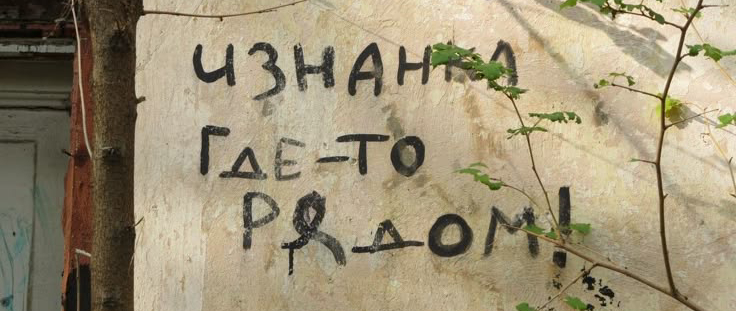 ИЗНАНКА
ГДЕ-ТО
РЯДОМ!